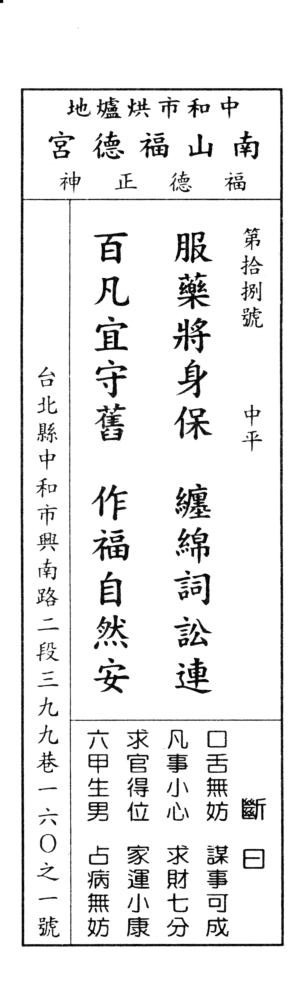 中和市烘爐地
南山福德宮
福德正神
第拾捌號　中平
服藥將身保　纏綿詞訟連
百凡宜守舊　作福自然安
斷曰
口舌無妨　謀事可成
凡事小心　求財七分
求官得位　家運小康
六甲生男　占病無妨
台北縣中和市興南路二段三九九巷一六〇之一號